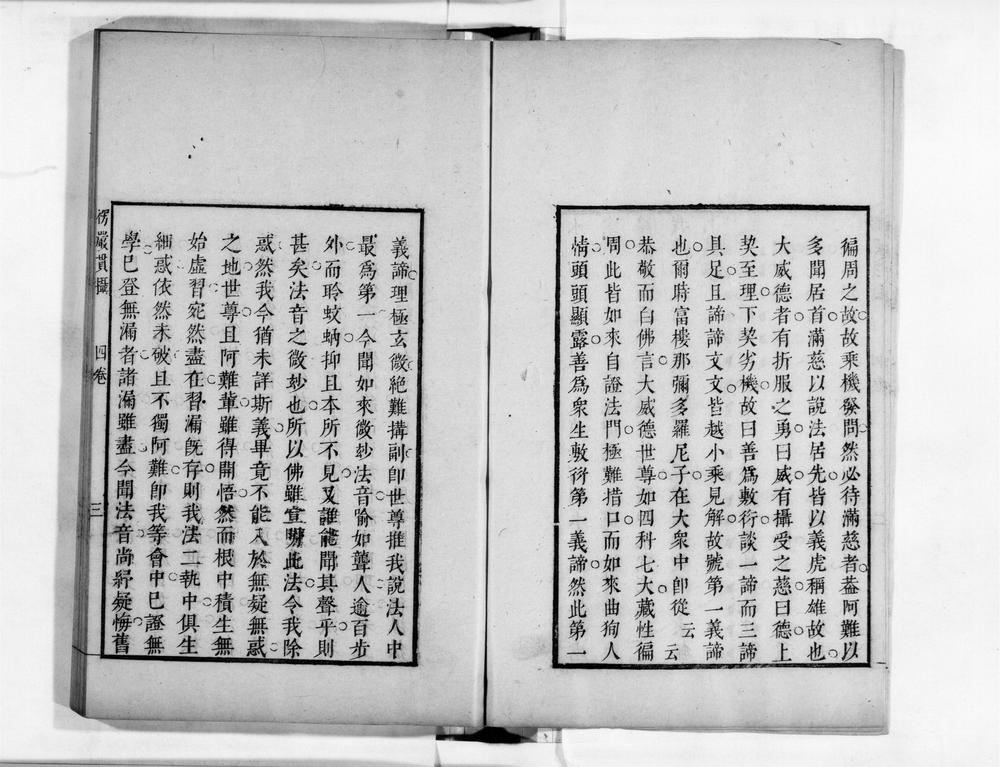 徧周之故故乘機發問然必待滿慈者葢阿難以
多聞居首滿慈以說法居先皆以義虎稱雄故也
大威德者有折服之勇曰威有攝受之慈曰德上
契至理下契劣機故曰善爲敷衍談一諦而三諦
具足且諦諦文文皆越小乘見解故號第一義諦
也爾時富樓那彌多羅尼子在大衆中卽從云云
恭敬而白佛言大威德世尊如四科七大藏性徧
周此皆如來自證法門極難措口而如來曲狥人
情頭頭顯露善爲衆生敷衍第一義諦然此第一
義諦理極玄微絶難搆副卽世尊推我說法人中
最爲第一今聞如來微妙法音喻如聾人逾百步
外而聆蚊蚋抑且本所不見又誰能聞其聲乎則
甚矣法音之微妙也所以佛雖宣明此法令我除
惑然我今猶未詳斯義畢竟不能入於無疑無惑
之地世尊且阿難輩雖得開悟然而根中積生無
始虛習宛然盡在習漏旣存則我法二執中俱生
細惑依然未破且不獨阿難卽我等會中已證無
學已登無漏者諸漏雖盡今聞法音尚紆疑悔舊
楞嚴貫攝　四卷　三